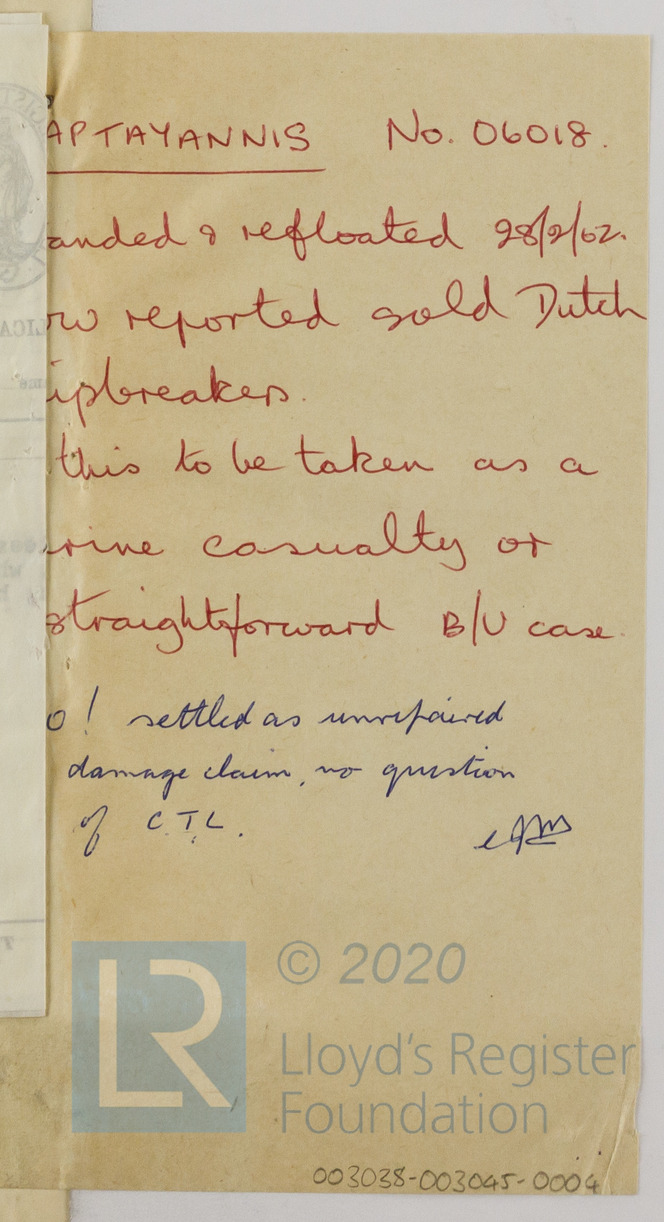 APTAYANNIS No. 06018.
anded & refloated 28/2/62.
ow reported sold Dutch
ipbreakers.
this to be taken as a
rine casualty or
straightforward B/U case.
o! settled as unrepaired
damage claim, no question
of C.T.L.
LR
© 2020
Lloyd's Register
Foundation
003038-003045-0004